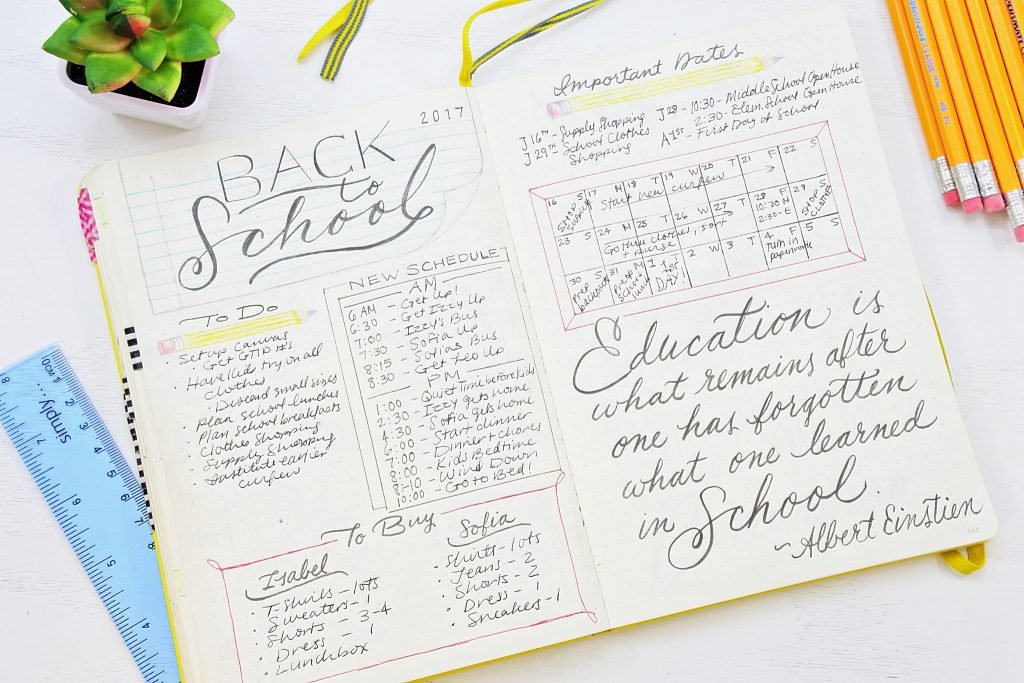 2017
BACK
to
School
To Do
Setup Canvas
- Get GTID #s
• Have Kids try on all
clothes
• Discard small sizes
• Plan School lunches
• Plan school breakfasts
• Clothes Shopping
• Supply Shopping
• Institute earlier
curfew
NEW SCHEDULE
AM
6 AM - Get Up!
6:30 - Get Izzy Up
7:00 - Izzy's Bus
7:30 - Sofia Up
8:15 - Sofias Bus
8:30 - Get Leo Up
PM
1:00 - Quiet Time before kids
2:30 - Izzy gets home
4:30 - Sofia gets home
6:00 - Start dinner
7:00 - Dinner + chores
8:00 - Kids Bedtime
8-10 - Wind Down
10:00 - Go to Bed!
To Buy
Isabel
• T-shirts - lots
• Sweaters - 1
• Shorts - 3-4
• Dress - 1
• Lunchbox
Sofia
• Shirts - lots
• Jeans - 2
• Shorts - 2
• Dress - 1
• Sneakers - 1
Important Dates
J 16th - Supply Shopping
J 29th - School Clothes
Shopping
J 28 - 10:30 - Middle School Open House
2:30 - Elem. School Open House
A 1st - First Day of School
16 S 17 M 18 T 19 W 20 T 21 F 22 S
Start new curfew
23 S 24 M 25 T 26 W 27 T 28 F 29 S
Go thru clothes, sort
10:30 M
2:30 - E
SHOP
CLOTHES
30 S 31 M 1 T 2 W 3 T 4 F 5 S
Prep
backpacks
Prep
school
lunch
1st
DAY!
Turn in
paperwork
Education is
what remains after
one has forgotten
what one learned
in School.
~Albert Einstien
simply